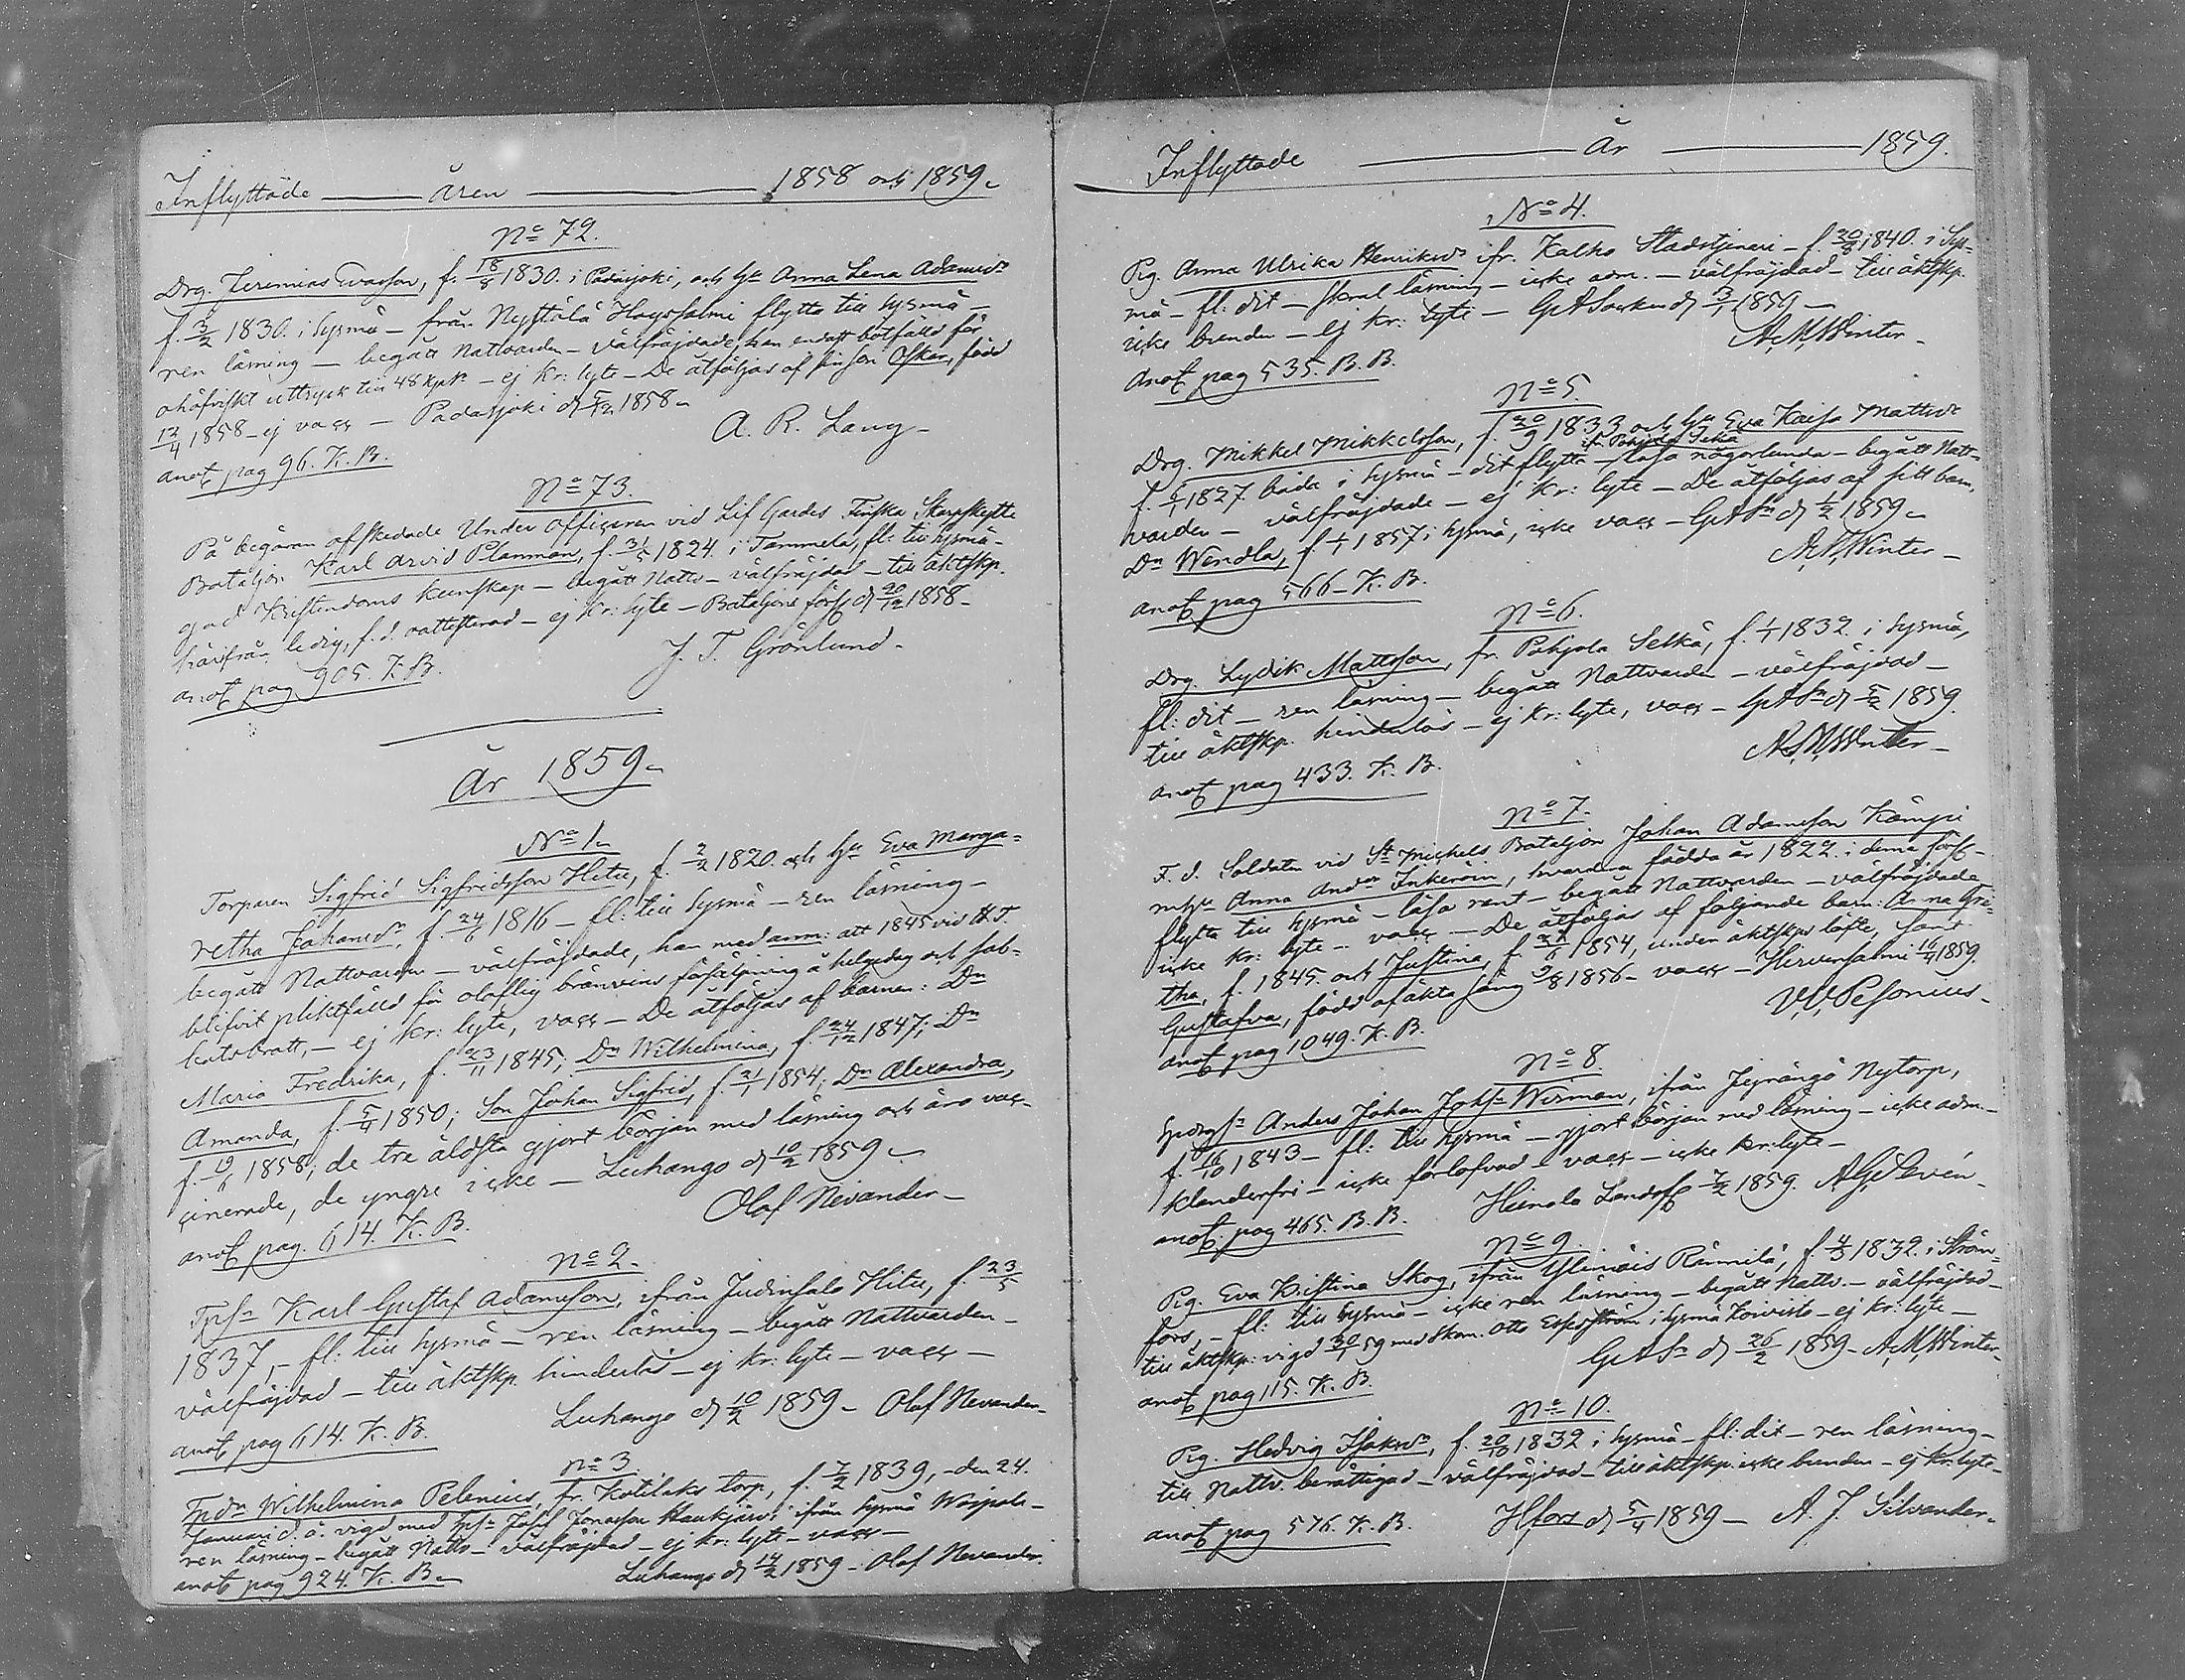 Inflyttade — åren — 1858 och 1859.
No 72.
Drg. Jeremias Evasson, f. 18/8 1830. i Padasjoki, och h:u Anna Lena Adamsd:r
f. 3/2 1830. i Sysmä – från Nystölä flytta till Sysmä –
ren läsning – begått Nattvarden – välfräjdade, han endast botfälld för
ohöfviskt uttryck till 48 kpk – ej kr: lyte – De åtföljas af sin son Oskar, född
12/4 1858 – ej vacc – Padasjoki d. 5/12 1858 –
A. R. Lang –
anot pag 96. K. B.
No 73.
På begäran afskedade Under officeren vid Lif Gardes Finska Skarpskytte
Bataljon Karl Arvid Planman, f. 31/5 1824. i Tammela, fl: till Sysmä –
god Kristendoms kunskap – begått Nattv – välfräjdad – till äktskp.
härifrån ledig, f. d. – ej kr: lyte – Bataljons förs: d. 20/12 1858 –
J. T. Grönlund –
anot pag 905. K. B.
År 1859 –
No 1.
Torparen Sigfrid Sigfridsson Hitu, f. 2/2 1820. och h:u Eva Marga=
retha Johansd:r, f. 24/6 1816 – fl: till Sysmä – ren läsning –
begått Nattvarden – välfräjdade, han med anm: att 1845 vid H. T.
blifvit pliktfälld för olaflig bränvins försäljning å helgedag och sab=
batsbrott, – ej kr: lyte, vacc – De åtföljas af barnen: D:n
Maria Fredrika, f. 23/11 1845; D:n Wilhelmina, f. 24/12 1847; D:n
Amanda, f. 5/4 1850; Son Johan Sigfrid, f. 21/1 1854; D:n Alexandra,
f. 19/6 1858; de tre äldsta gjort början med läsning och äro vac=
cinerade, de yngre icke – Luhango d. 10/2 1859 –
Olof Nevander –
anot pag. 614. K. B.
No 2.
Tps:n Karl Gustaf Adamsson, ifrån Judinsalo Hitu, f. 23/5
1837, – fl: till Sysmä – ren läsning – begått Nattvarden –
välfräjdad – till äktskp. hinderlös – ej kr: lyte – vacc –
Luhango d. 10/2 1859 – Olof Nevander –
anot pag 614. K. B.
No 3.
Tpd:n Wilhelmina Pelenius, fr. Kotilaks torp, f. 7/2 1839, – den 24.
Januari d. å. vigd med Josef Jonasson Haukjärvi ifrån Sysmä –
ren läsning – begått Nattv – välfräjdad – ej kr: lyte – vacc –
Luhango d. 14/2 1859 – Olof Nevander.
anot pag 924. K. B.
Inflyttade — År — 1859.
No 4.
Pig. Anna Ulrika Henriksd:r ifr. Kalho Stadstjeneri – f. 20/8 1840. i Sys=
mä – fl: dit – läsning – icke adm. – välfräjdad – till äktskp.
icke bunden – ej kr: lyte – d. 3/1 1859 –
A. M. Winter –
anot pag 535. B. B.
No 5.
Drg. Mikkel Mikkelsson, f. 20/9 1833 och h:u Eva Kaisa Mattsd:r
ifr. Pohjola Selkä
f. 6/1 1827. båda i Sysmä – dit flytta – läsa någorlunda – begått Natt=
varden – välfräjdade – ej kr: lyte – De åtföljas af sitt barn,
D:n Wendla, f. 1/1 1857 i Sysmä, icke vacc – d. 1/2 1859 –
A. M. Winter –
anot pag 566 – K. B.
No 6.
Drg. Lydik Mattsson, fr. Pohjola Selkä, f. 1/1 1832. i Sysmä,
fl: dit – ren läsning – begått Nattvarden – välfräjdad –
till äktskp. hinderlös – ej kr: lyte, vacc – d. 5/2 1859.
A. M. Winter –
anot pag 433. K. B.
No 7.
F. d. Soldaten vid St Michels Bataljon Johan Adamsson Kämpi
m h:u Anna And:dr Inkeroin, hvardera födda år 1822. i denna förs: –
flytta till Sysmä – läsa rent – begått Nattvarden – välfräjdade
icke kr: lyte – vacc – De åtföljas af följande barn: Anna Gre=
tha, f. 1845. och Justina, f. 1854, under äktskps löfte, samt
Gustafva, född af äkta säng 9/8 1856 – vacc – Hirvensalmi 16/4 1859.
V. V. Pesonius –
anot pag 1049. K. B.
No 8.
Anders Johan Wirman, ifrån Nytorp,
f. 16/10 1843 – fl: till Sysmä – gjort början med läsning – icke adm. –
klanderfri – icke förlofvad – vacc – icke kr: lyte –
Heinola Landsf. 7/2 1859.
anot pag 465. B. B.
No 9.
Pig. Eva Kristina Skog, ifrån Rämmilä, f. 4/3 1832. i Ström=
fors, – fl: till Sysmä – icke ren läsning – begått Nattv. – välfräjdad –
till äktskp: vigd 30/1 59 med Skom. Otto Esperström i Sysmä Koivisto – ej kr: lyte –
d. 26/2 1859 – A. M. Winter –
anot pag 115. K. B.
No 10.
Pig. Hedvig Isaksd:r, f. 20/10 1832 i Sysmä – fl: dit – ren läsning –
till Nattv. berättigad – välfräjdad – till äktskp. icke bunden – ej kr: lyte –
Hfors d. 5/4 1859 – A. J. Silvander –
anot pag 576. K. B.